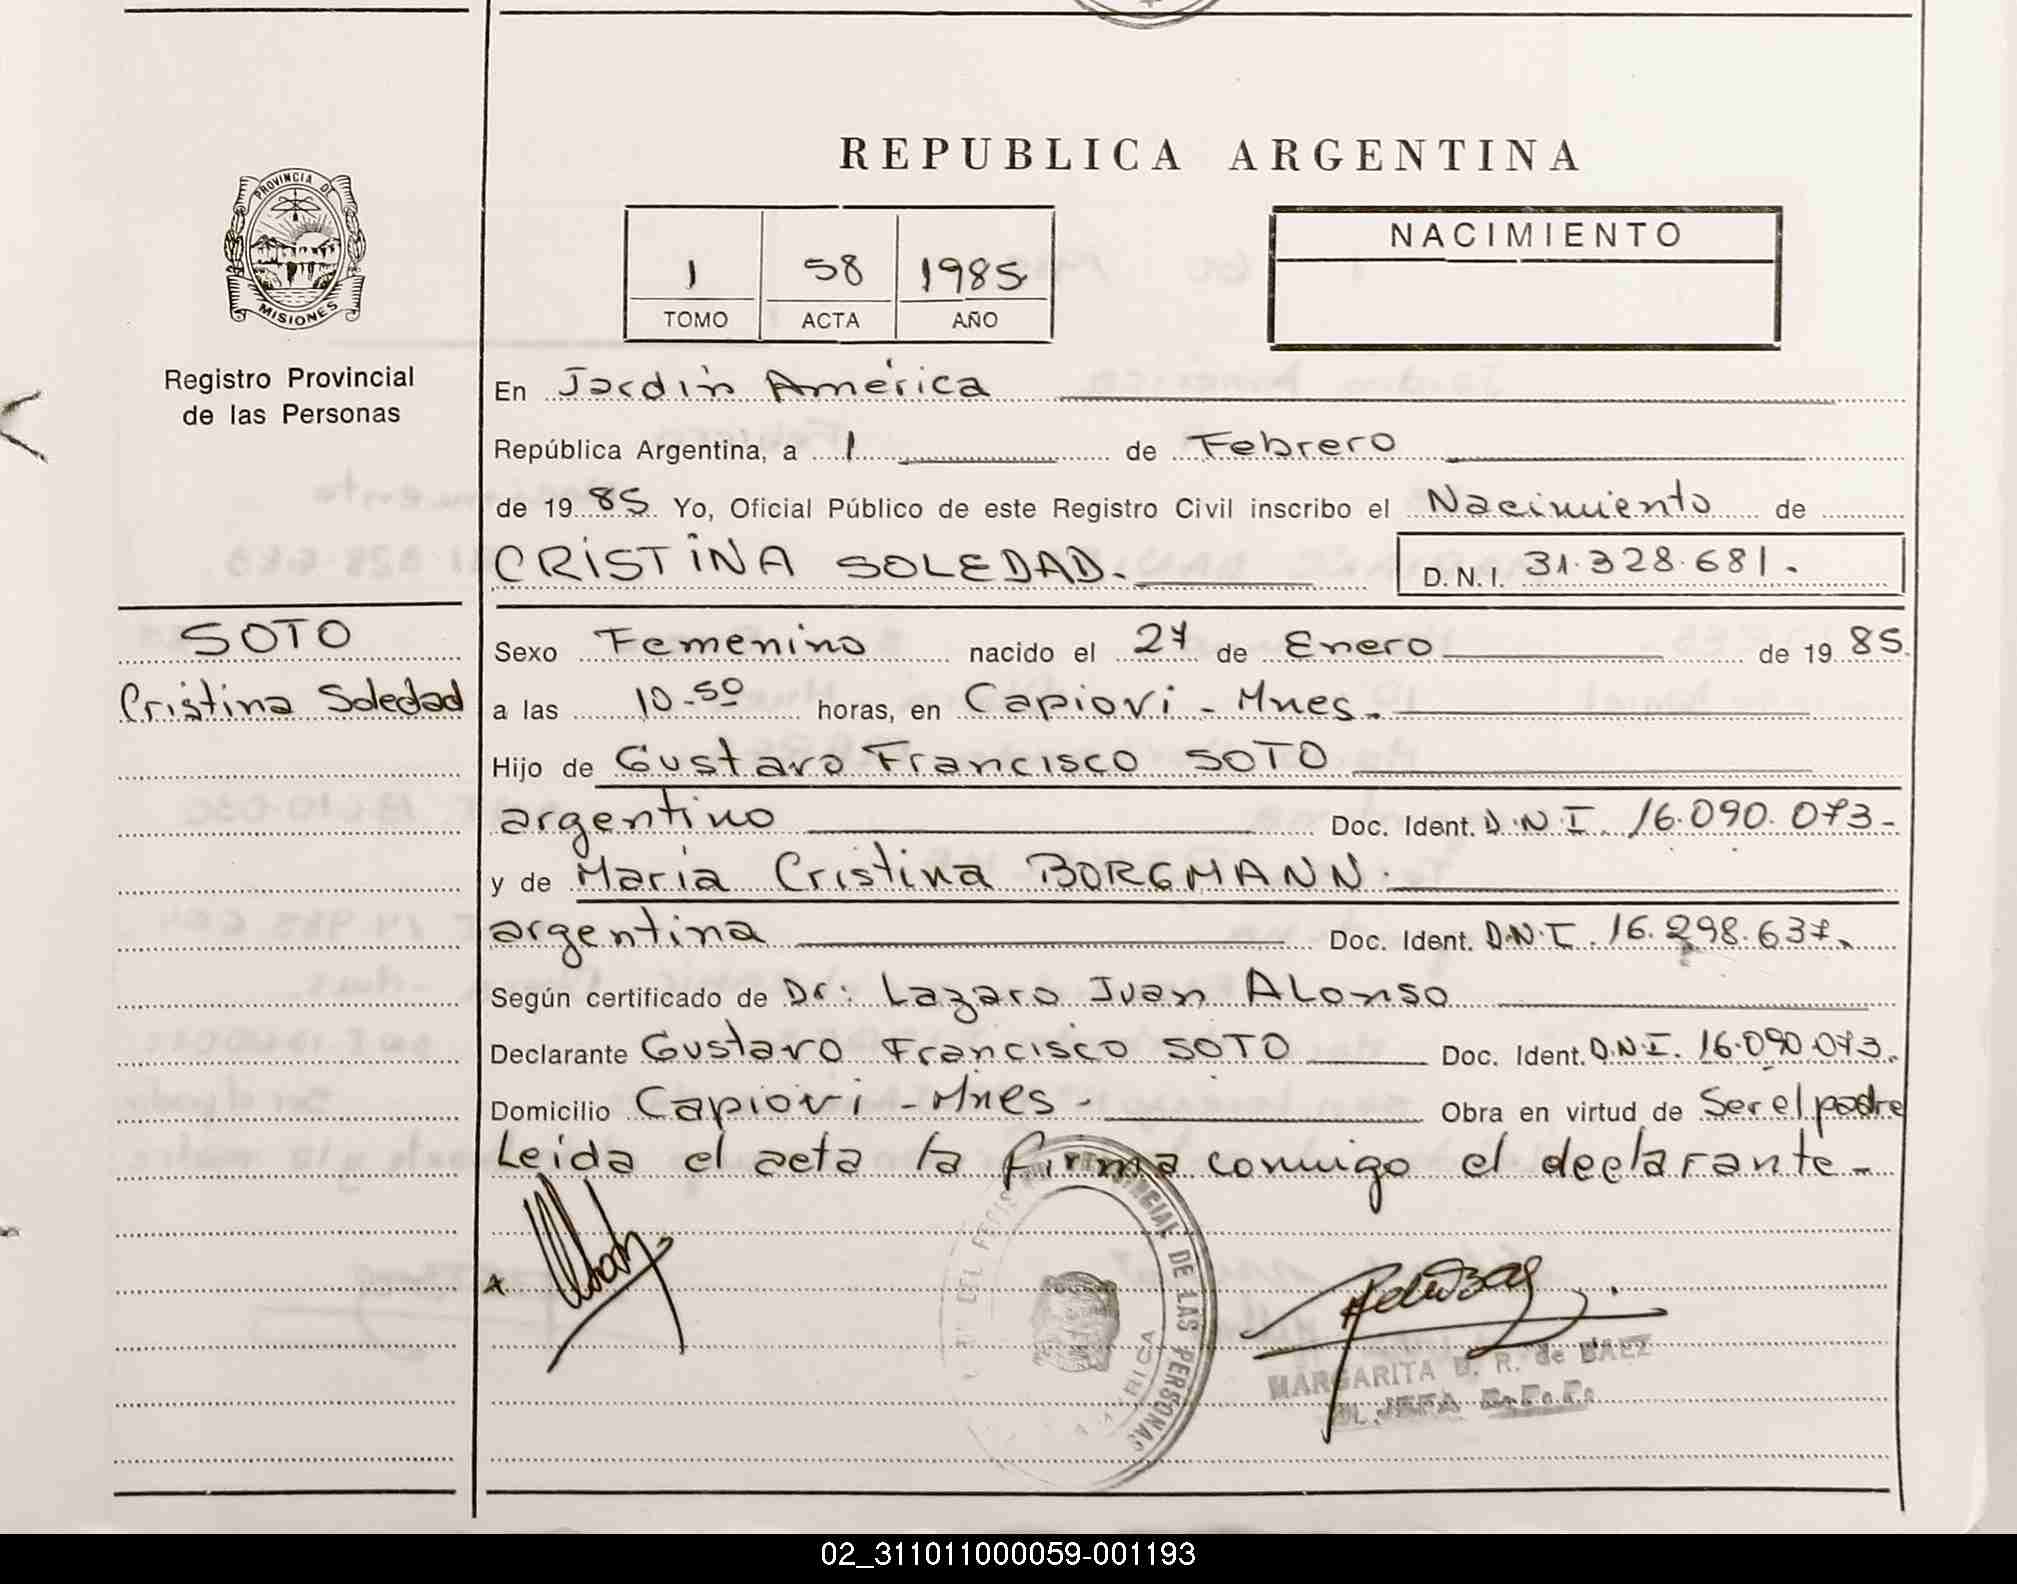 REPUBLICA ARGENTINA
PROVINCIA DE
MISIONES
Registro Provincial
de las Personas
1 58 1985
TOMO ACTA AÑO
NACIMIENTO
En Jardín América
República Argentina, a 1 de Febrero
de 1985 Yo, Oficial Público de este Registro Civil inscribo el Nacimiento de
CRISTINA SOLEDAD. D.N.I. 31.328.681.
SOTO
Cristina Soledad
Sexo Femenino nacido el 27 de Enero de 1985.
a las 10-50 horas, en Capiovi - Mnes.
Hijo de Gustavo Francisco SOTO
argentino Doc. Ident. D.N.I. 16.090.073-
y de María Cristina BORGMANN.
argentina Doc. Ident. D.N.I. 16.298.637.
Según certificado de Dr: Lazaro Juan ALonso
Declarante Gustavo Francisco SOTO Doc. Ident. D.N.I. 16.090.073.
Domicilio Capiovi - Mnes - Obra en virtud de Ser el padre
Leida el acta la firma conmigo el declarante-
DE LAS PERSONAS
MARGARITA R. de BAEZ
JEFA
02_311011000059-001193